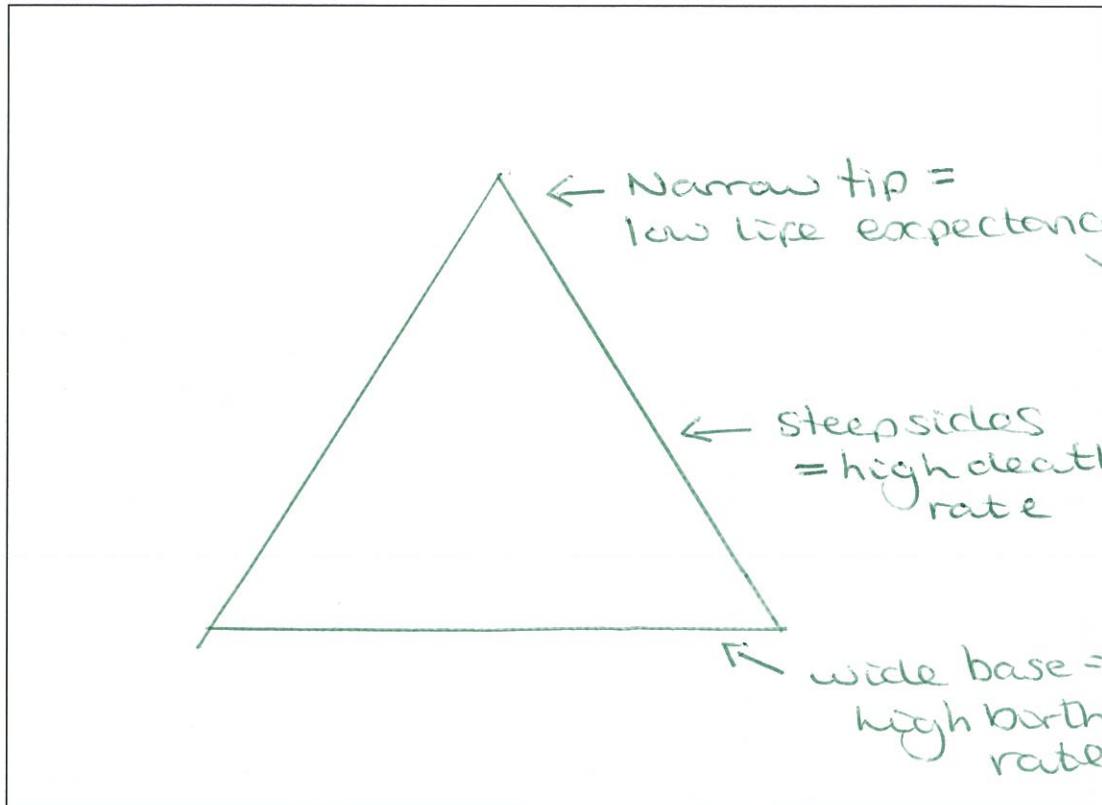 ← Narrow tip =
low life expectanc
← steep sides
= high death
rate
← wide base =
high birth
rate